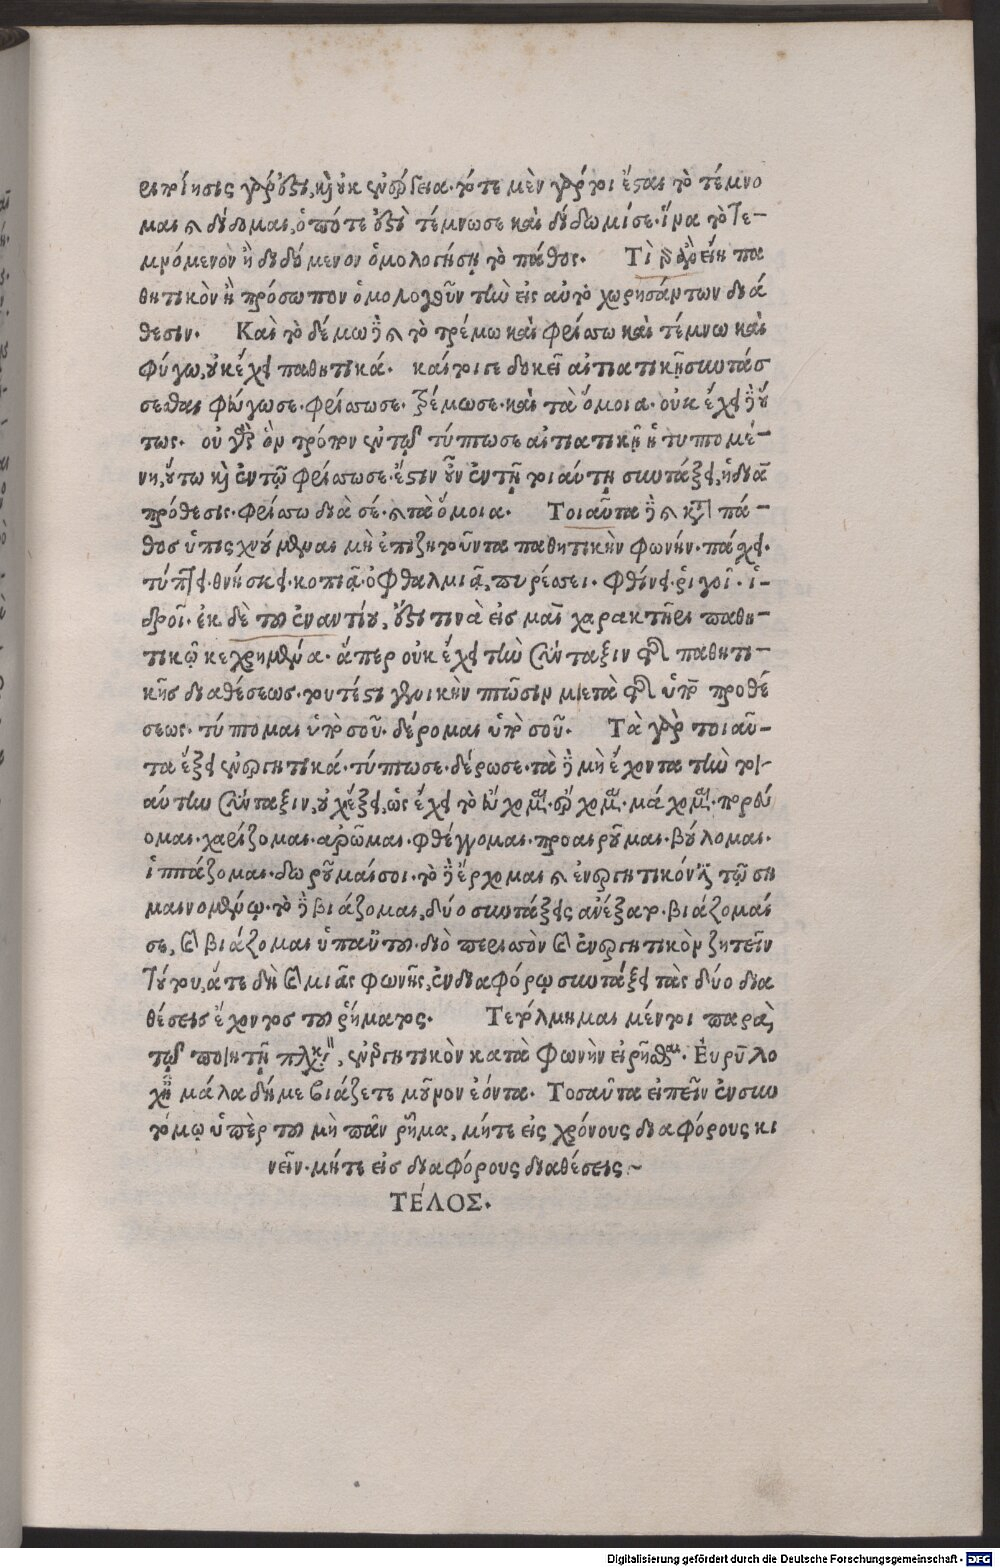 αιτίησις γάρ ἐστι, καὶ οὐκ ἐνέργεια. τότε μὲν γάρ τοι ἔσται τὸ τέμνο
μαι καὶ δέδομαι, ὁπότε ἐστὶ τέμνωσε καὶ δέδωμίσε. ἵνα τὸ τε-
μνόμενον ἢ δεδόμενον ὁμολογήσῃ τὸ πάθος. Τί γὰρ εἴη πα
θητικὸν ἢ πρόσωπον ὁμολογοῦν τὴν εἰς αὐτὸ χωρησάντων διά
θεσιν. Καὶ τὸ δέμω δὲ καὶ τὸ τρέμω καὶ φρίσσω καὶ τέμνω καὶ
φύγω, οὐκ ἔχει παθητικά. καίτοισε δοκεῖ αἰτιατικῇ συντάσ
σεσθαι φεύγωσε. φρίσσωσε. τρέμωσε. καὶ τὰ ὅμοια. οὐκ ἔχει δὲ οὕ
τως. οὐ γὰρ ὃν τρόπον ἐν τῷ τύπτωσε αἰτιατικὴ ἡ τυπτομέ-
νη, οὕτω καὶ ἐν τῷ φρίσσωσε. ἔστιν οὖν ἐν τῇ τοιαύτῃ συντάξει, ἡ διὰ
πρόθεσις. φρίσσω διὰ σέ. καὶ τὰ ὅμοια. Τοιαῦτα δὲ καὶ κατὰ πά-
θος ὑπισχνούμεναι μὴ ἐπιζητοῦντα παθητικὴν φωνήν. πάσχει.
τύπτει. θνήσκει. κοπιᾷ. ὀφθαλμιᾷ. πυρέσσει. φθίνει. ῥιγοῖ. ἱ-
δροῖ. ἐκ δὲ τοῦ ἐναντίου, ἔστι τινὰ εἰς μαι χαρακτῆρι παθη-
τικῷ κεχρημένα. ἅπερ οὐκ ἔχει τὴν σύνταξιν τῆς παθητι-
κῆς διαθέσεως. τουτέστι γενικὴν πτῶσιν μετὰ τῆς ὑπὸ προθέ
σεως. τύπτομαι ὑπὸ σοῦ. δέρομαι ὑπὸ σοῦ. Τὰ γὰρ τοιαῦ-
τα ἕξει ἐνεργητικά. τύπτωσε. δέρωσε. τὰ δὲ μὴ ἔχοντα τὴν τοι-
αύτην σύνταξιν, οὐχ ἕξει, ὡς ἔχει τὸ εὔχομαι. ἔρχομαι. μάχομαι. πορεύ
ομαι. χαρίζομαι. ἀρῶμαι. φθέγγομαι. προαιροῦμαι. βούλομαι.
ἱππάζομαι. δωροῦμαίσοι. τὸ δὲ ἔρχομαι καὶ ἐνεργητικόν ἐστι τῷ ση
μαινομένῳ. τὸ δὲ βιάζομαι, δύο συντάξεις ἀνεδέξατο. βιάζομαί
σε, καὶ βιάζομαι ὑπαὐτοῦ. διὸ περισσὸν καὶ ἐνεργητικὸν ζητεῖν
τούτου, ἅτε δὴ καὶ μιᾶς φωνῆς, ἐν διαφόρῳ συντάξει τὰς δύο δια
θέσεις ἔχοντος τοῦ ῥήματος. Τετόλμημαι μέντοι παρὰ
τῷ ποιητῇ πλεκτὴ, ἐνεργητικὸν κατὰ φωνὴν εἰρῆσθαι. Εὐρύλο
χη μάλα δήμε βιάζετε μοῦνον ἐόντα. Τοσαῦτα εἰπεῖν ἐν συν
τόμῳ ὑπὲρ τοῦ μὴ πᾶν ῥῆμα, μήτε εἰς χρόνους διαφόρους κι
νεῖν. μήτε εἰς διαφόρους διαθέσεις~
ΤΕΛΟΣ.
Digitalisierung gefördert durch die Deutsche Forschungsgemeinschaft - DFG